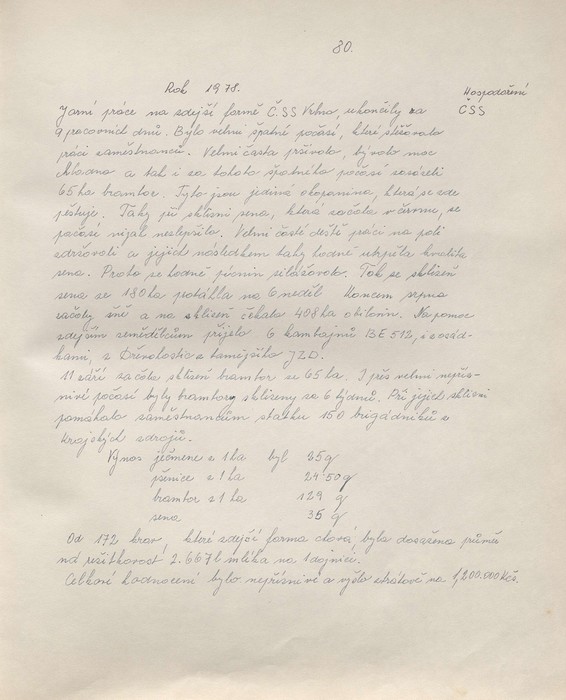 80.
Rok 1978.
Hospodaření
ČSS
Jarní práce na zdejší farmě Č.SS Vrbno, ukončily za
9 pracovních dnů. Bylo velmi špatné počasí, které stěžovalo
práci zaměstnanců. Velmi často pršívalo, bývalo moc
chladno a tak i za tohoto špatného počasí zasázeli
65 ha brambor. Tyto jsou jediná okopanina, která se zde
pěstuje. Taky při sklizni sena, která začala v červnu, se
počasí nijak nezlepšilo. Velmi časté deště práci na poli
zdržovali a jejich následkem taky hodně utrpěla kvalita
sena. Proto se hodně pícnin silážovalo. Tak se sklizeň
sena ze 180 ha potáhla na 6 neděl. Koncem srpna
začaly žně a na sklizeň čekalo 408 ha obilovin. Na pomoc
zdejším zemědělcům přijelo 6 kombajnů BE 512, i s osád-
kami, z tamějšího JZD.
11 září začala sklizeň brambor ze 65 ha. I přes velmi nepříz-
nivé počasí byly brambory sklizeny za 6 týdnů. Při jejich sklizni
pomáhalo zaměstnancům statku 150 brigádníků z
krajských zdrojů.
Výnos ječmene z 1 ha byl 25 q
pšenice z 1 ha 24.50 q
brambor z 1 ha 129 q
sena 35 q
Od 172 krav, které zdejší farma chová byla dosažena průměr
ná užitkovost 2.667 l mléka na 1 dojnici.
Celkové hodnocení bylo nepříznivé a vyšlo ztrátově na 1,200.000 Kčs.